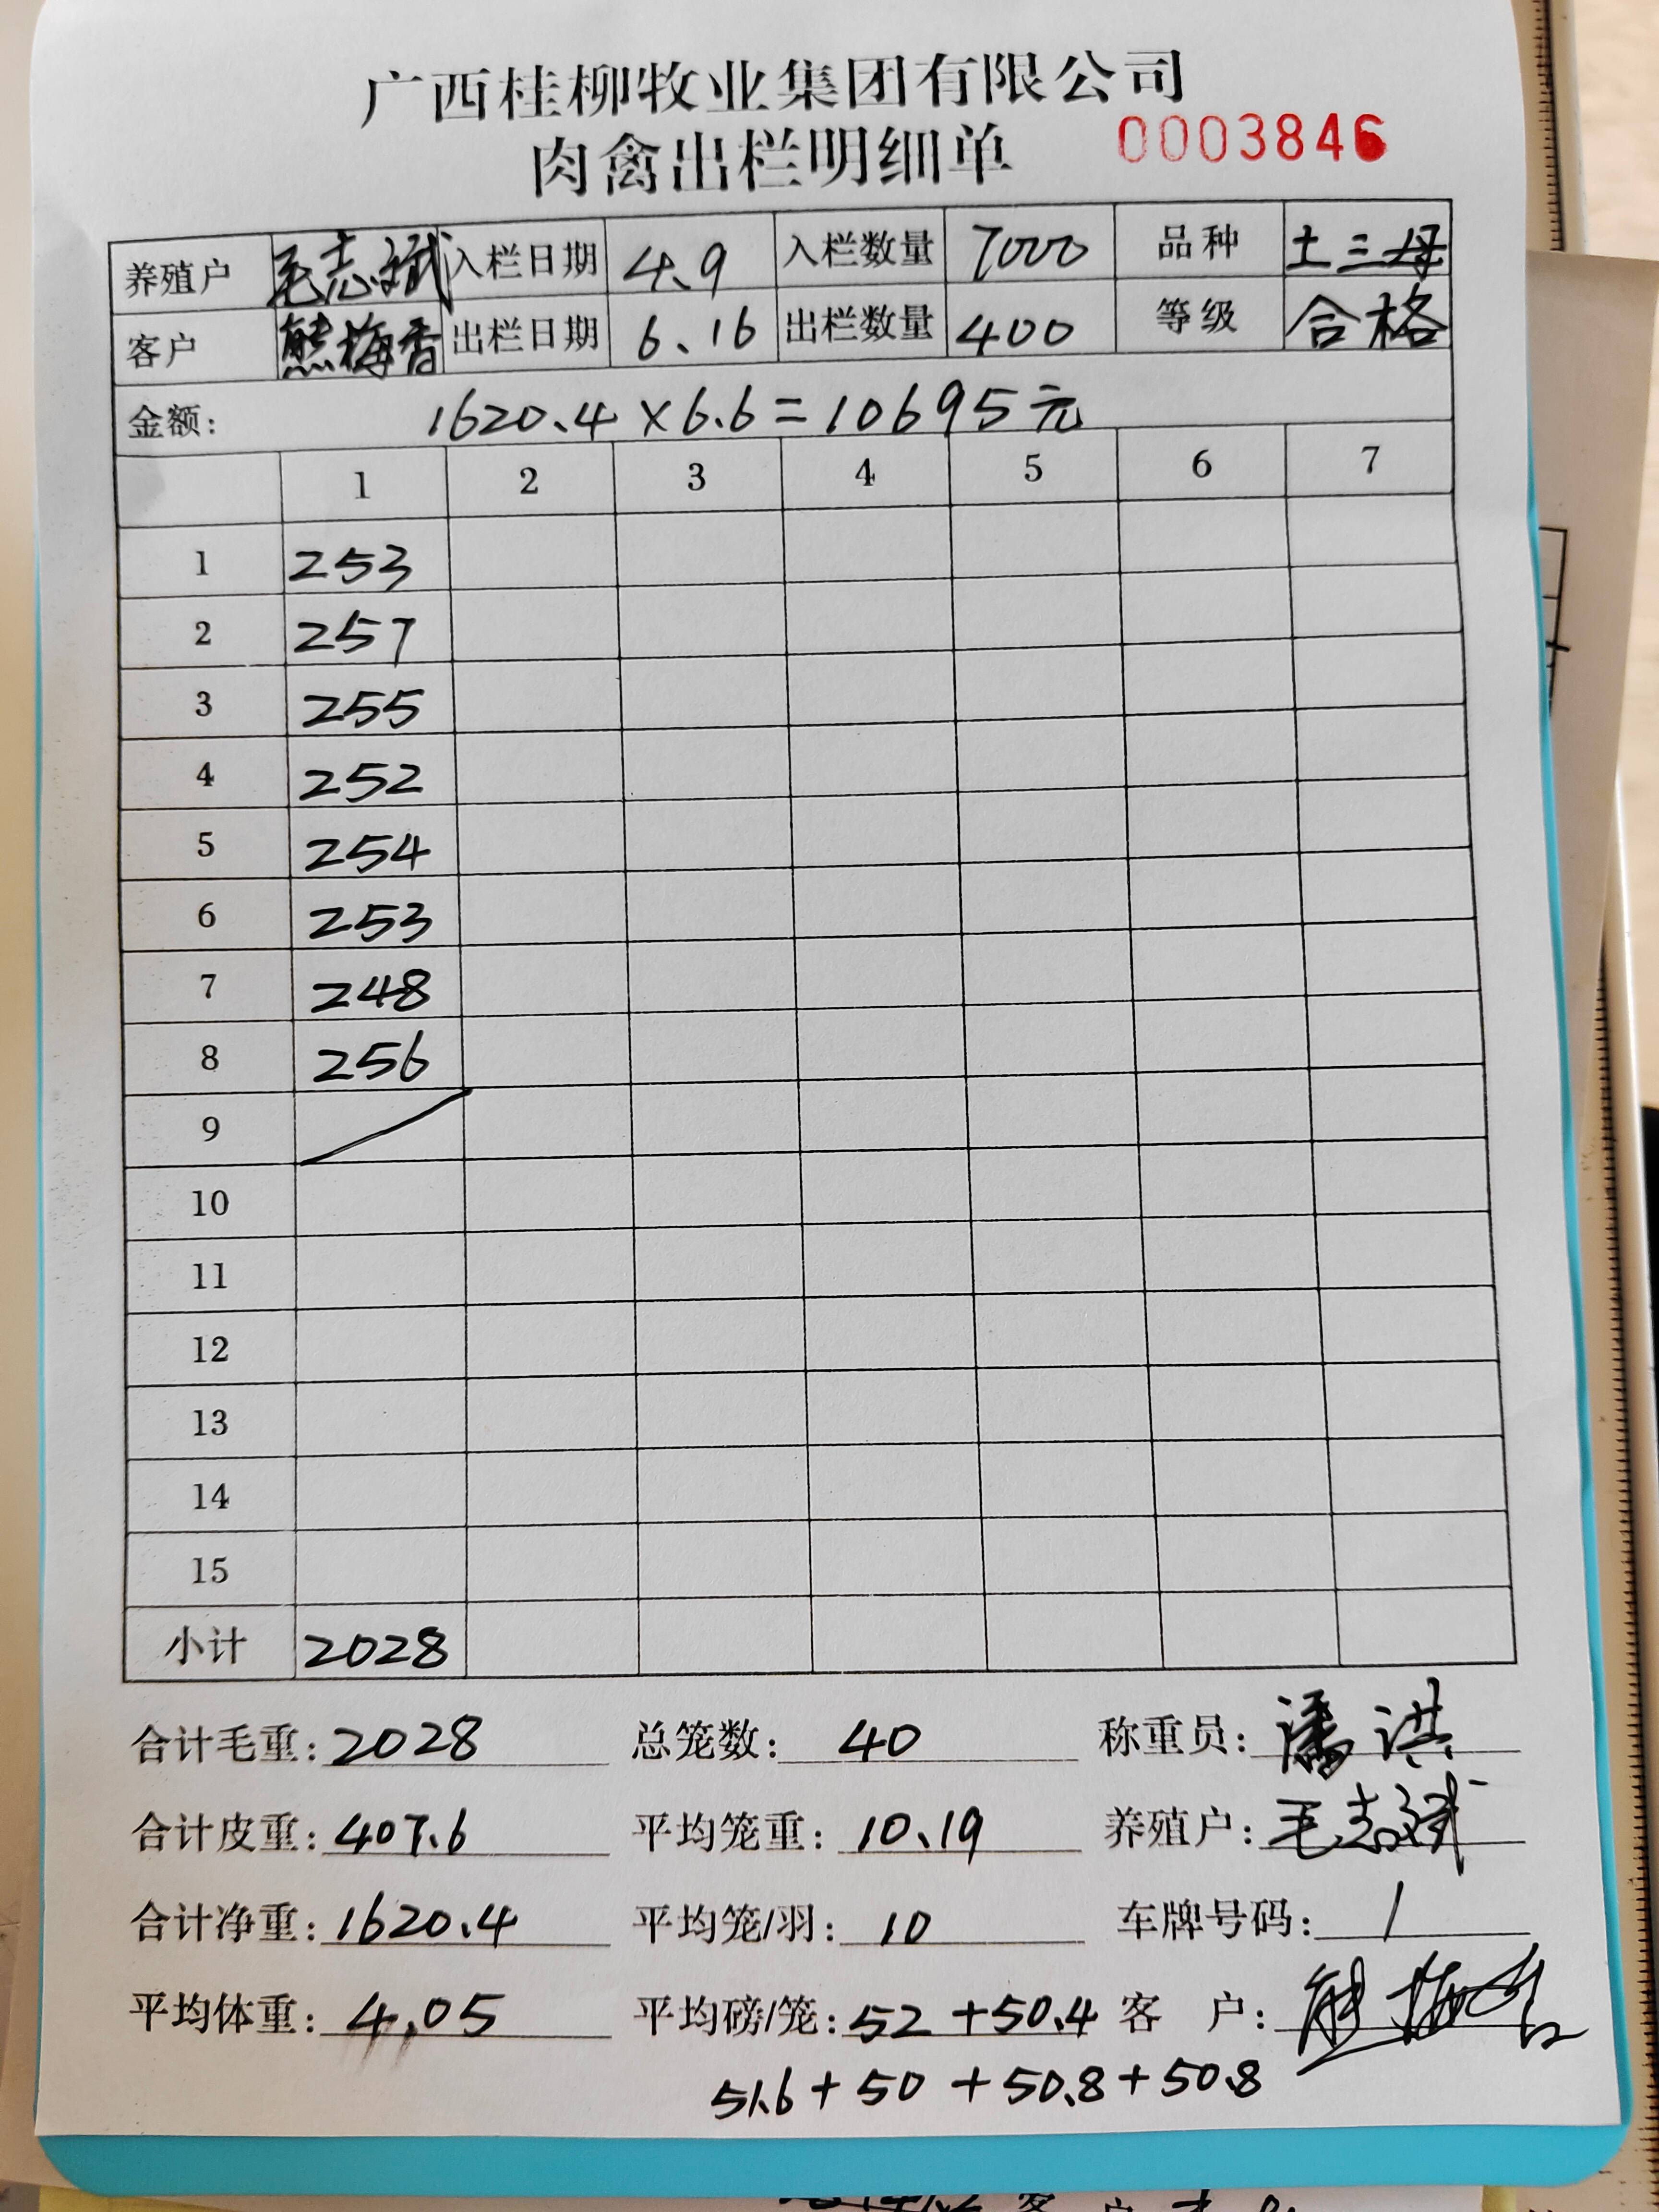 广西桂柳牧业集团有限公司
肉禽出栏明细单 0003846
养殖户 毛志斌 入栏日期 4.9 入栏数量 7000 品种 土三母
客户 熊梅香 出栏日期 6.16 出栏数量 400 等级 合格
金额: 1620.4×6.6=10695元
1 2 3 4 5 6 7
1 253
2 257
3 255
4 252
5 254
6 253
7 248
8 256
9
10
11
12
13
14
15
小计 2028
合计毛重: 2028 总笼数: 40 称重员: 潘洪
合计皮重: 407.6 平均笼重: 10.19 养殖户: 毛志斌
合计净重: 1620.4 平均笼/羽: 10 车牌号码: /
平均体重: 4.05 平均磅/笼: 52+50.4 客户: 熊梅香
51.6+50+50.8+50.8